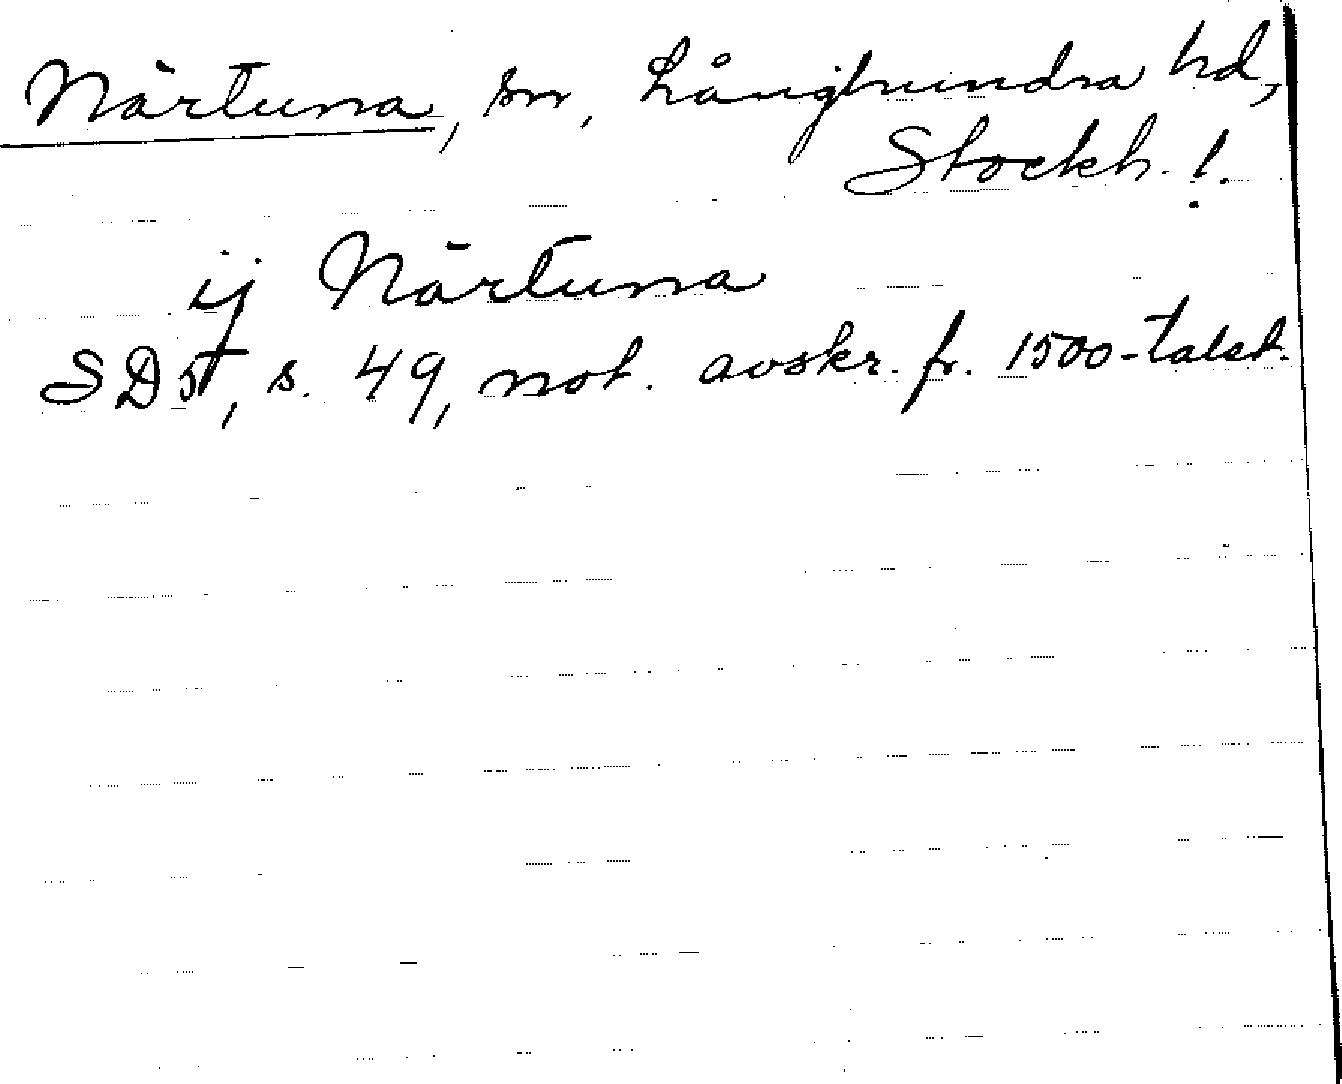 Närtuna, sn, Långhundra hd,
Stockh. l.
ij Närtuna
SD5, s. 49, not. avskr. fr. 1500-talet.